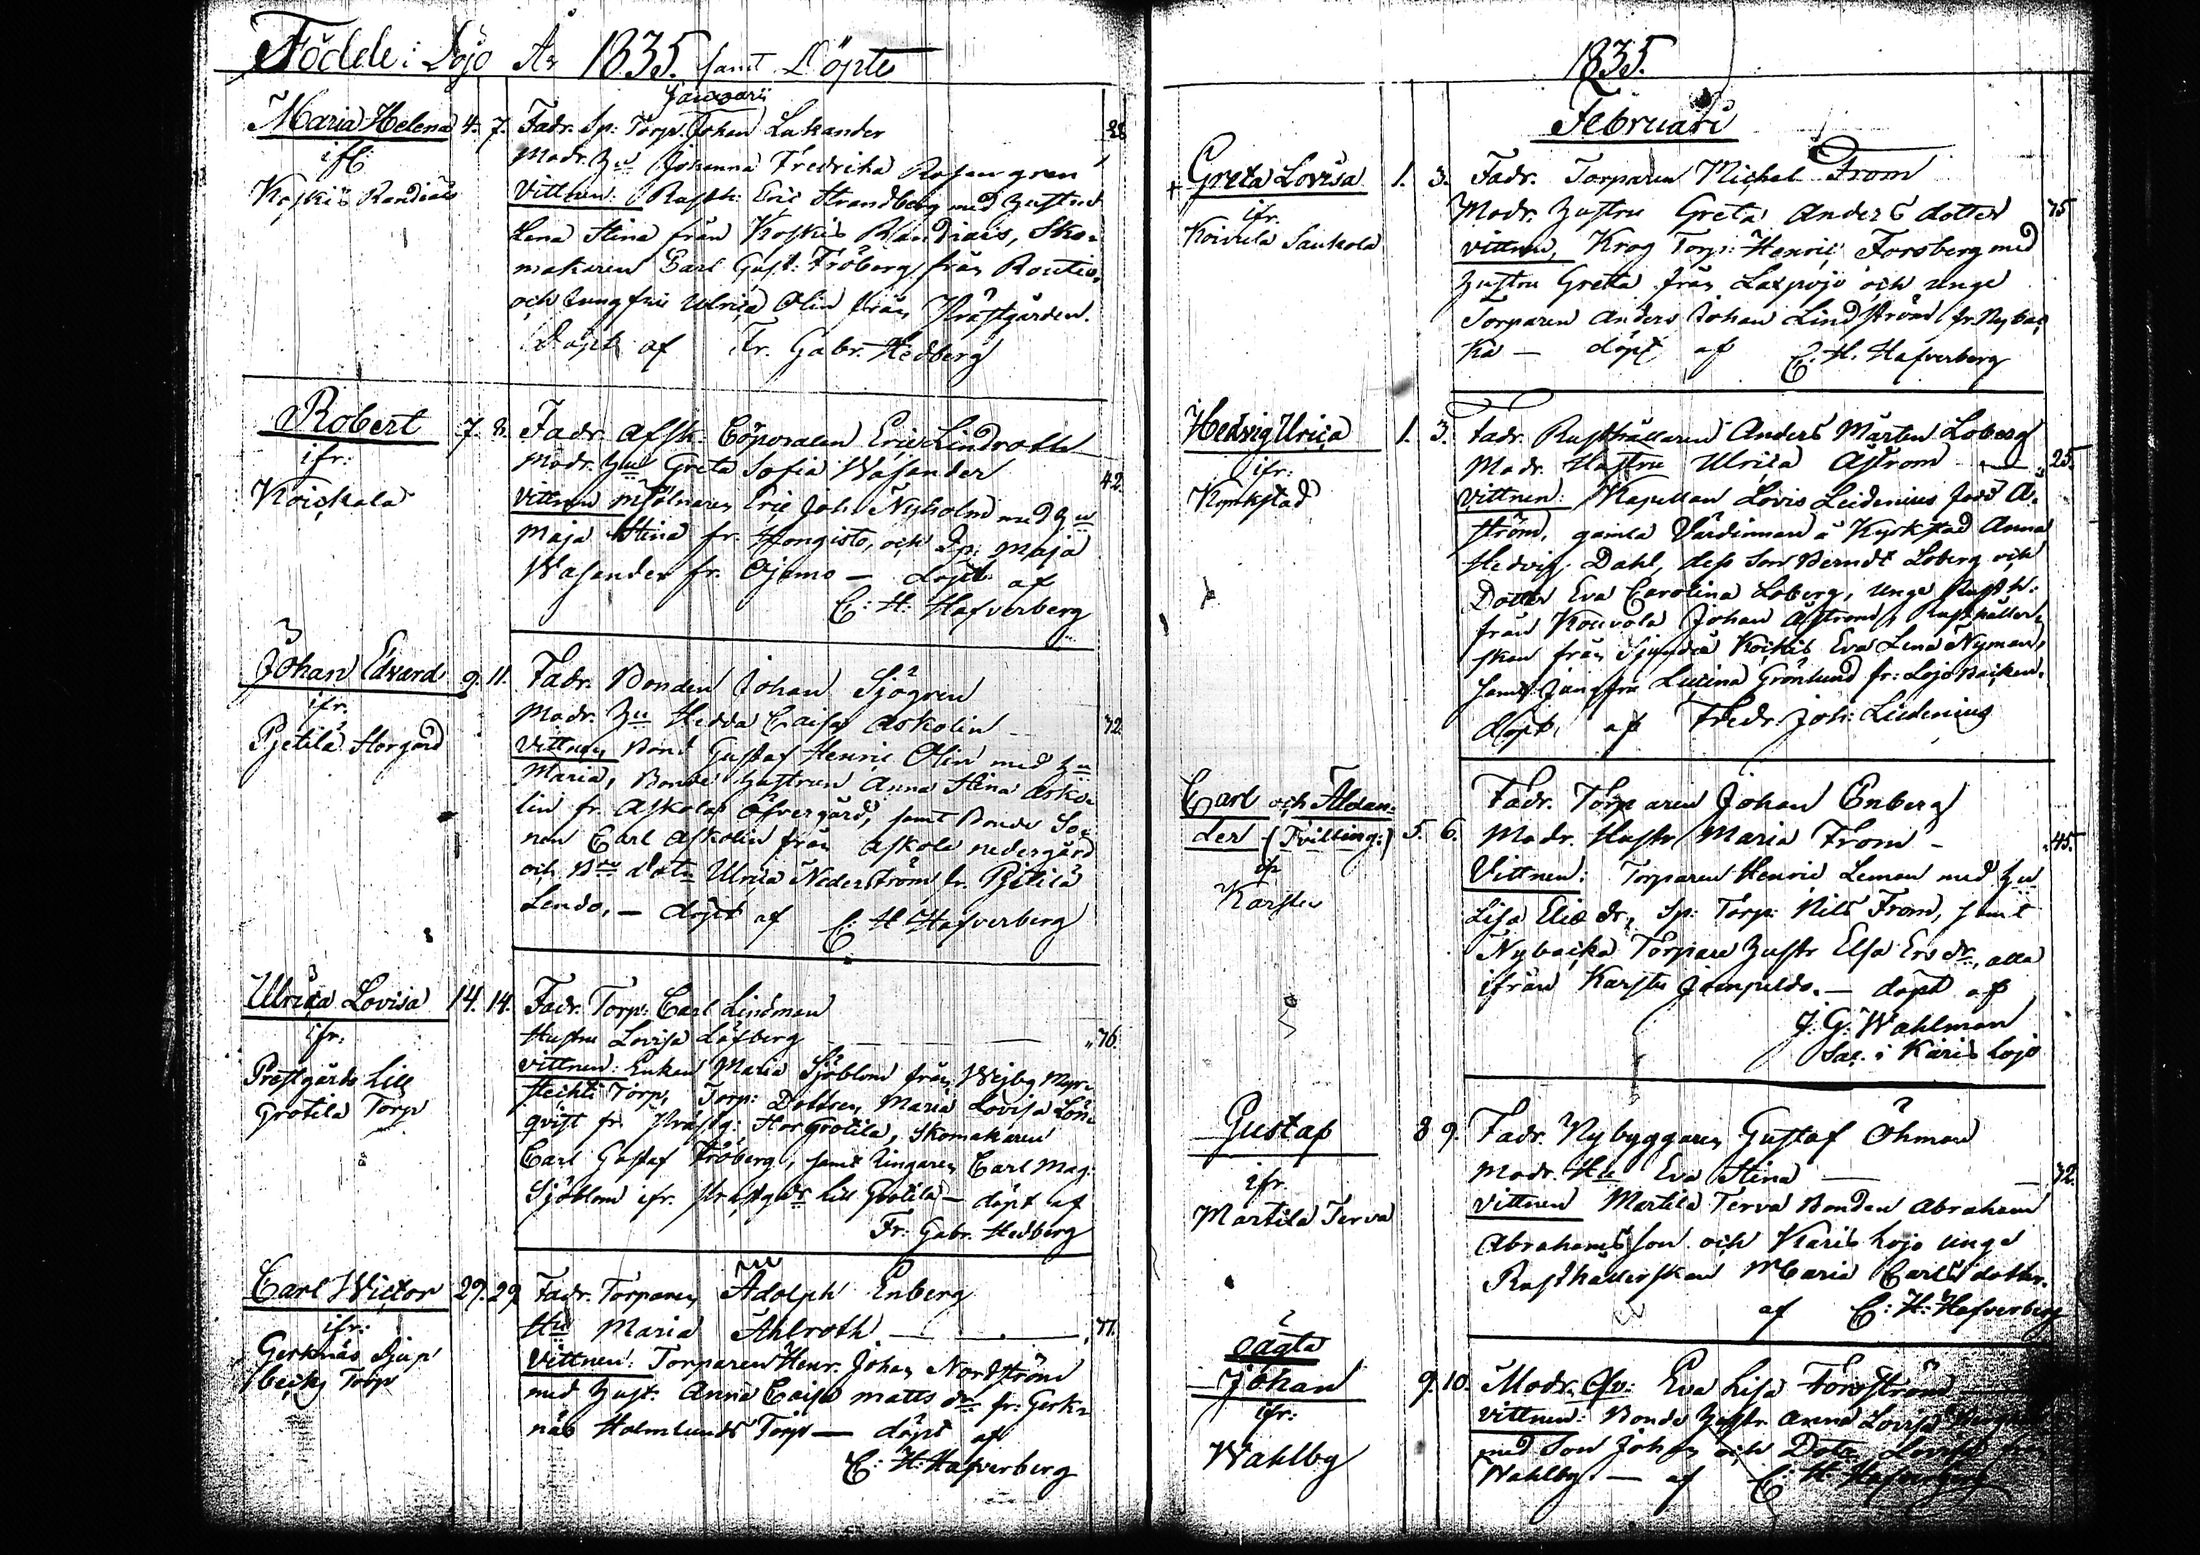 Födde i Lojo År 1835. samt Döpte
Januarii
Maria Helena 4. 7. Fadr. Sp: Torp. Johan Lukander 28
ifr. Modr. Hu Johanna Fredrika Rosengren
Koskis Vittnen: Rusth: Eric Strandberg med Hustru
Lena Stina från Koskis, Sko-
makaren Carl Gust: Fröberg från Routio,
och Jungfru Ulrica Olin från Prästgården.
Döpt af Fr. Gabr. Hedberg
Robert 7. 8. Fadr. Afsk. Coporalen Eric Lindroth
ifr: Modr. Hu Greta Sofia Wasander 42.
Koiskala Vittnen Mjölnaren Eric Joh: Nyholm med Hu
Maja Stina fr. Hongisto, och Maja
Wasander fr. Ojamo – döpt af
C: H: Hafverberg
Johan Edvard 9. 11. Fadr. Bonden Johan Sjögren
ifr. Modr. Hu Hedda Caisa Askolin 72.
Pjetilä Storgård Vittnen Bond Gustaf Henric Olin med Hu
Maria, Bonde Hustrun Anna Stina Asko-
lin fr. Askola Öfvergård, samt Bonde So-
nen Carl Askolin från Askola nedergård
och Dotn Ulrica Nederström fr. Pjetilä
– döpt af C: H Hafverberg
Ulrica Lovisa 14. 14. Fadr. Torp: Carl Lindman
ifr. Hustru Lovisa Löfberg 76.
Prästgårds Lill Vittnen: Enkan Maria Sjöblom från
Grotila Torp Torp, Torp: Dottren Maria Lovisa Lön-
qvist fr. Prästg: Storgrotila, Skomakaren
Carl Gustaf Fröberg, samt Carl Mag:
Sjöblom ifr. Prästgds Lill Grotila – döpt af
Fr: Gabr. Hedberg
Carl Wictor 29. 29. Fadr. Torparen Adolph Enberg
ifr: Hu Maria Åhlroth 77.
Gerknäs Djup Vittnen: Torparen Henr. Johan Nordström
becks Torp med Hust: Anna Caisa Matts dr fr: Gerk-
näs Holmlunds Torp – döpt af
C: H: Hafverberg
1835.
Februari
+ Greta Lovisa 1. 3. Fadr. Torparen Michel From
ifr. Modr. Hustru Greta Anders dotter 75
Koivula Vittnen, Krog Torp: Henric Forsberg med
Hustru Greta från Laxpojo och unge
Torparen Anders Johan Lindström fr. Nybac-
ka – döpt af C. H. Hafverberg
Hedvig Ulrica 1. 3. Fadr. Rusthållaren Anders Mårten Loberg
ifr: Modr. Hustru Ulrica Åström 25.
Kyrkstad Vittnen: Kapellan Lovis Lidenius
ström, gamla Värdinnan å Kyrkstad Anna
Hedvig Dahl, dess Son Berndt Loberg och
Dotter Eva Carolina Loberg, unge Rusth:
från Kouvola Johan Åström, Rusthåller-
skan från Sjundeå Koskis Eva Lena Nyman,
samt Jungfru Lucina Grönlund fr: Lojo
döpt af Fredr: Joh: Lidenius
Carl och Alexan- Fadr. Torparen Johan Enberg
der (Tvilling:) 5. 6. Modr. Hustr Maria From – 45.
ifr Vittnen: Torparen Henric Leman med Hu
Karstu Lisa Elias dr, Sp: Torp: Nils From, samt
Nybacka Torpare Hustr Elsa Ers dr, alla
ifrån Karstu – döpt af
J. G. Wahlman
Sac. i Karis Lojo
Gustaf 8 9. Fadr. Nybyggaren Gustaf Öhman
ifr. Modr. Hu Eva Stina 72.
Martila Terva Vittnen Martila Terva Bonden Abraham
Abrahamsson och Karis Lojo unge
Rusthållerskan Maria Carls dotter.
af C: H: Hafverberg
oägta
Johan 9. 10. Modr. Qv: Eva Lisa Forsström
ifr: Vittnen: Bonde Hustr. Anna Lovisa
Wahlby med Son Johan och Dotr Lovisa
Wahlby – af C: H Hafverberg